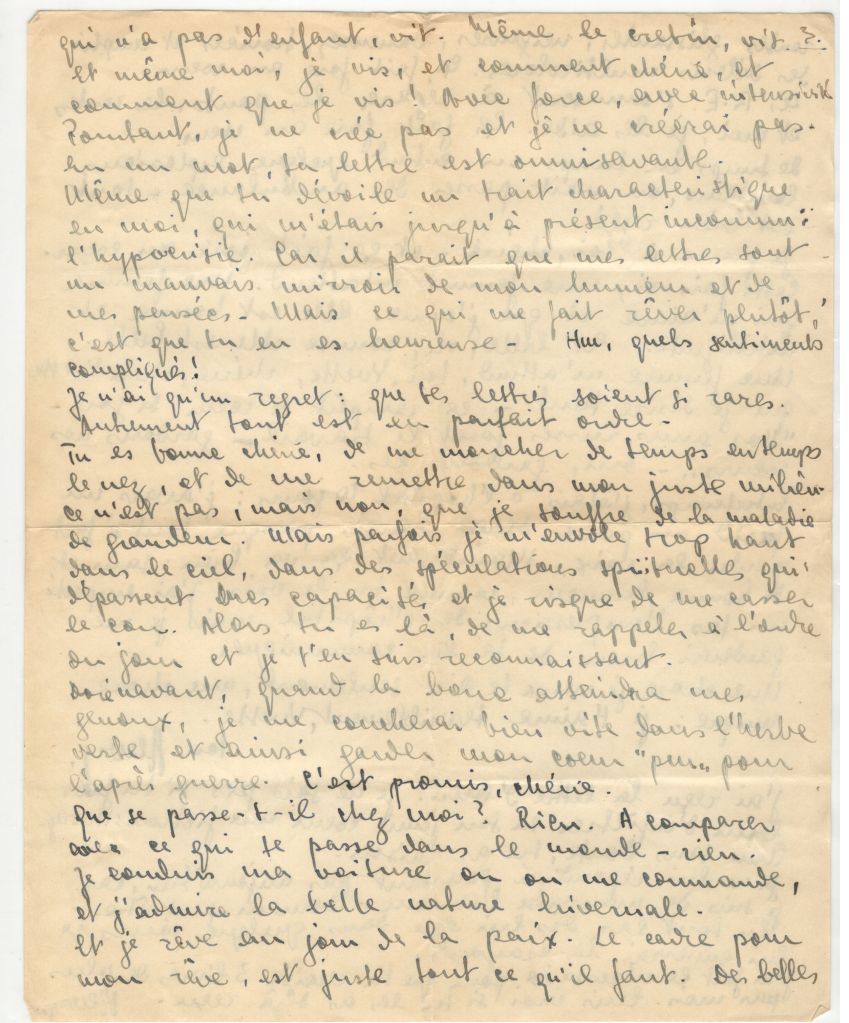 qui n'a pas d'enfant, vit. Même le cretin, vit. ?.
et même moi, je vis, et comment chérie, et
comment que je vis! Avec force, avec intensivité
Pourtant, je ne crée pas et je ne créerai pas.
En un mot, ta lettre est omnisavante.
Même que tu dévoile un trait charactéristique
en moi, qui m'étais jusqu'à présent inconnu:
l'hypocrisie. Car il parait que mes lettres sont
un mauvais mirroir de mon humeur et de
mes pensées. Mais ce qui me fait rêver plutôt,
c'est que tu en es heureuse - Hm, quels sentiments
compliqués!
Je n'ai qu'un regret: que tes lettres soient si rares.
Autrement tout est en parfait ordre.
Tu es bonne chérie, de me moucher de temps en temps
le nez, et de me remettre dans mon juste milieu.
Ce n'est pas, mais non, que je souffre de la maladie
de grandeur. Mais parfois je m'envole trop haut
dans le ciel, dans des spéculations spirituelles qui
dépassent mes capacités, et je risque de me casser
le cou. Alors tu es là, de me rappeler à l'ordre
du jour et je t'en suis reconnaissant.
Dorénavant, quand la boue atteindra mes
genoux, je me coucherai bien vite dans l'herbe
verte et ainsi garder mon coeur "pur" pour
l'après guerre. C'est promis, chérie.
Que se passe-t-il chez moi? Rien. A comparer
avec ce qui se passe dans le monde - rien.
Je conduis ma voiture ou on me commande,
et j'admire la belle nature hivernale.
Et je rêve au jour de la paix. Le cadre pour
mon rêve, est juste tout ce qu'il faut. Des belles